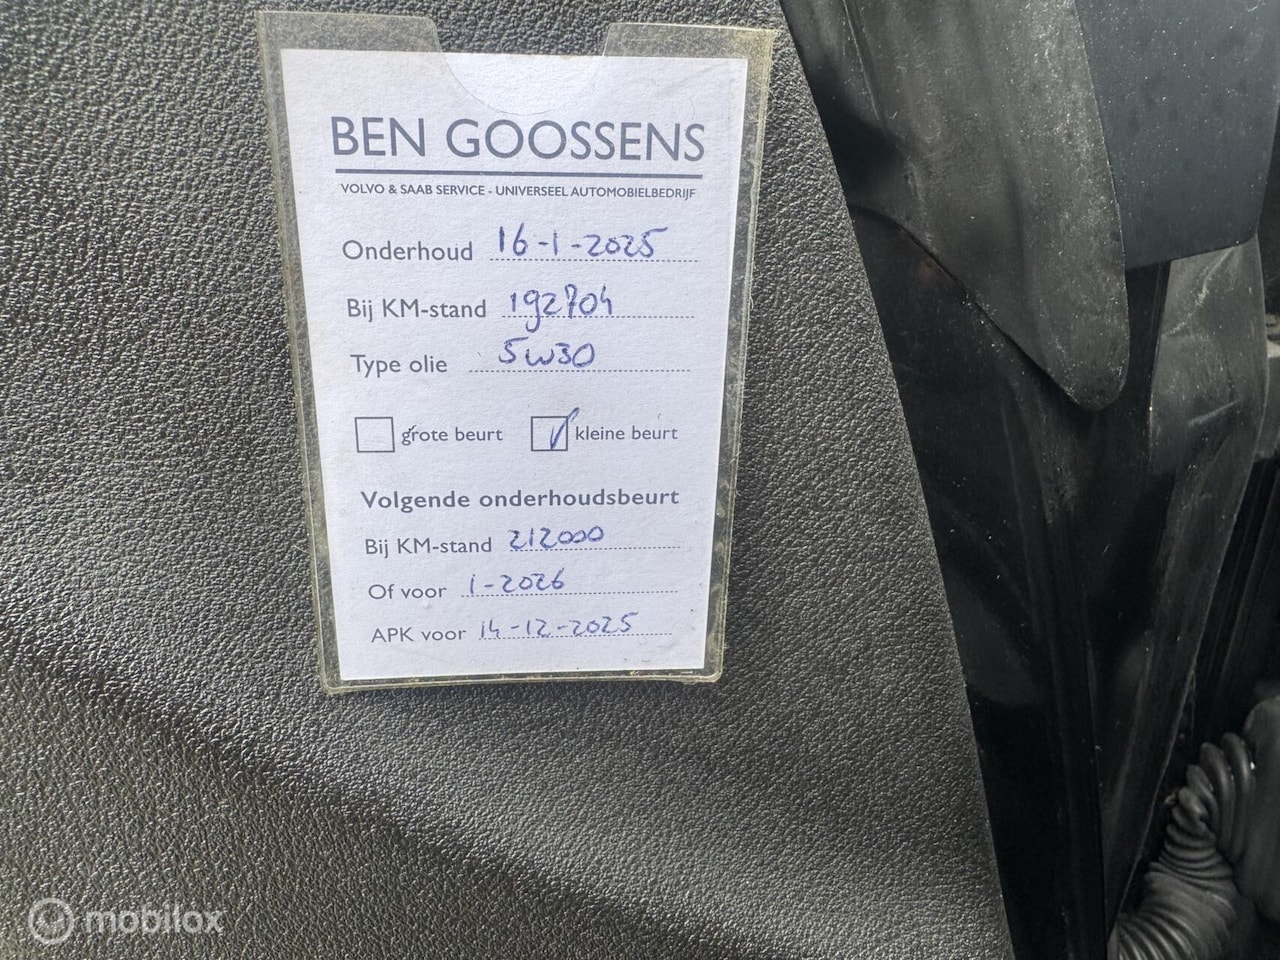 BEN GOOSSENS
VOLVO & SAAB SERVICE - UNIVERSEEL AUTOMOBIELBEDRIJF
Onderhoud 16-1-2025
Bij KM-stand 192704
Type olie 5W30
grote beurt kleine beurt
Volgende onderhoudsbeurt
Bij KM-stand 212000
Of voor 1-2026
APK voor 14-12-2025
mobilox